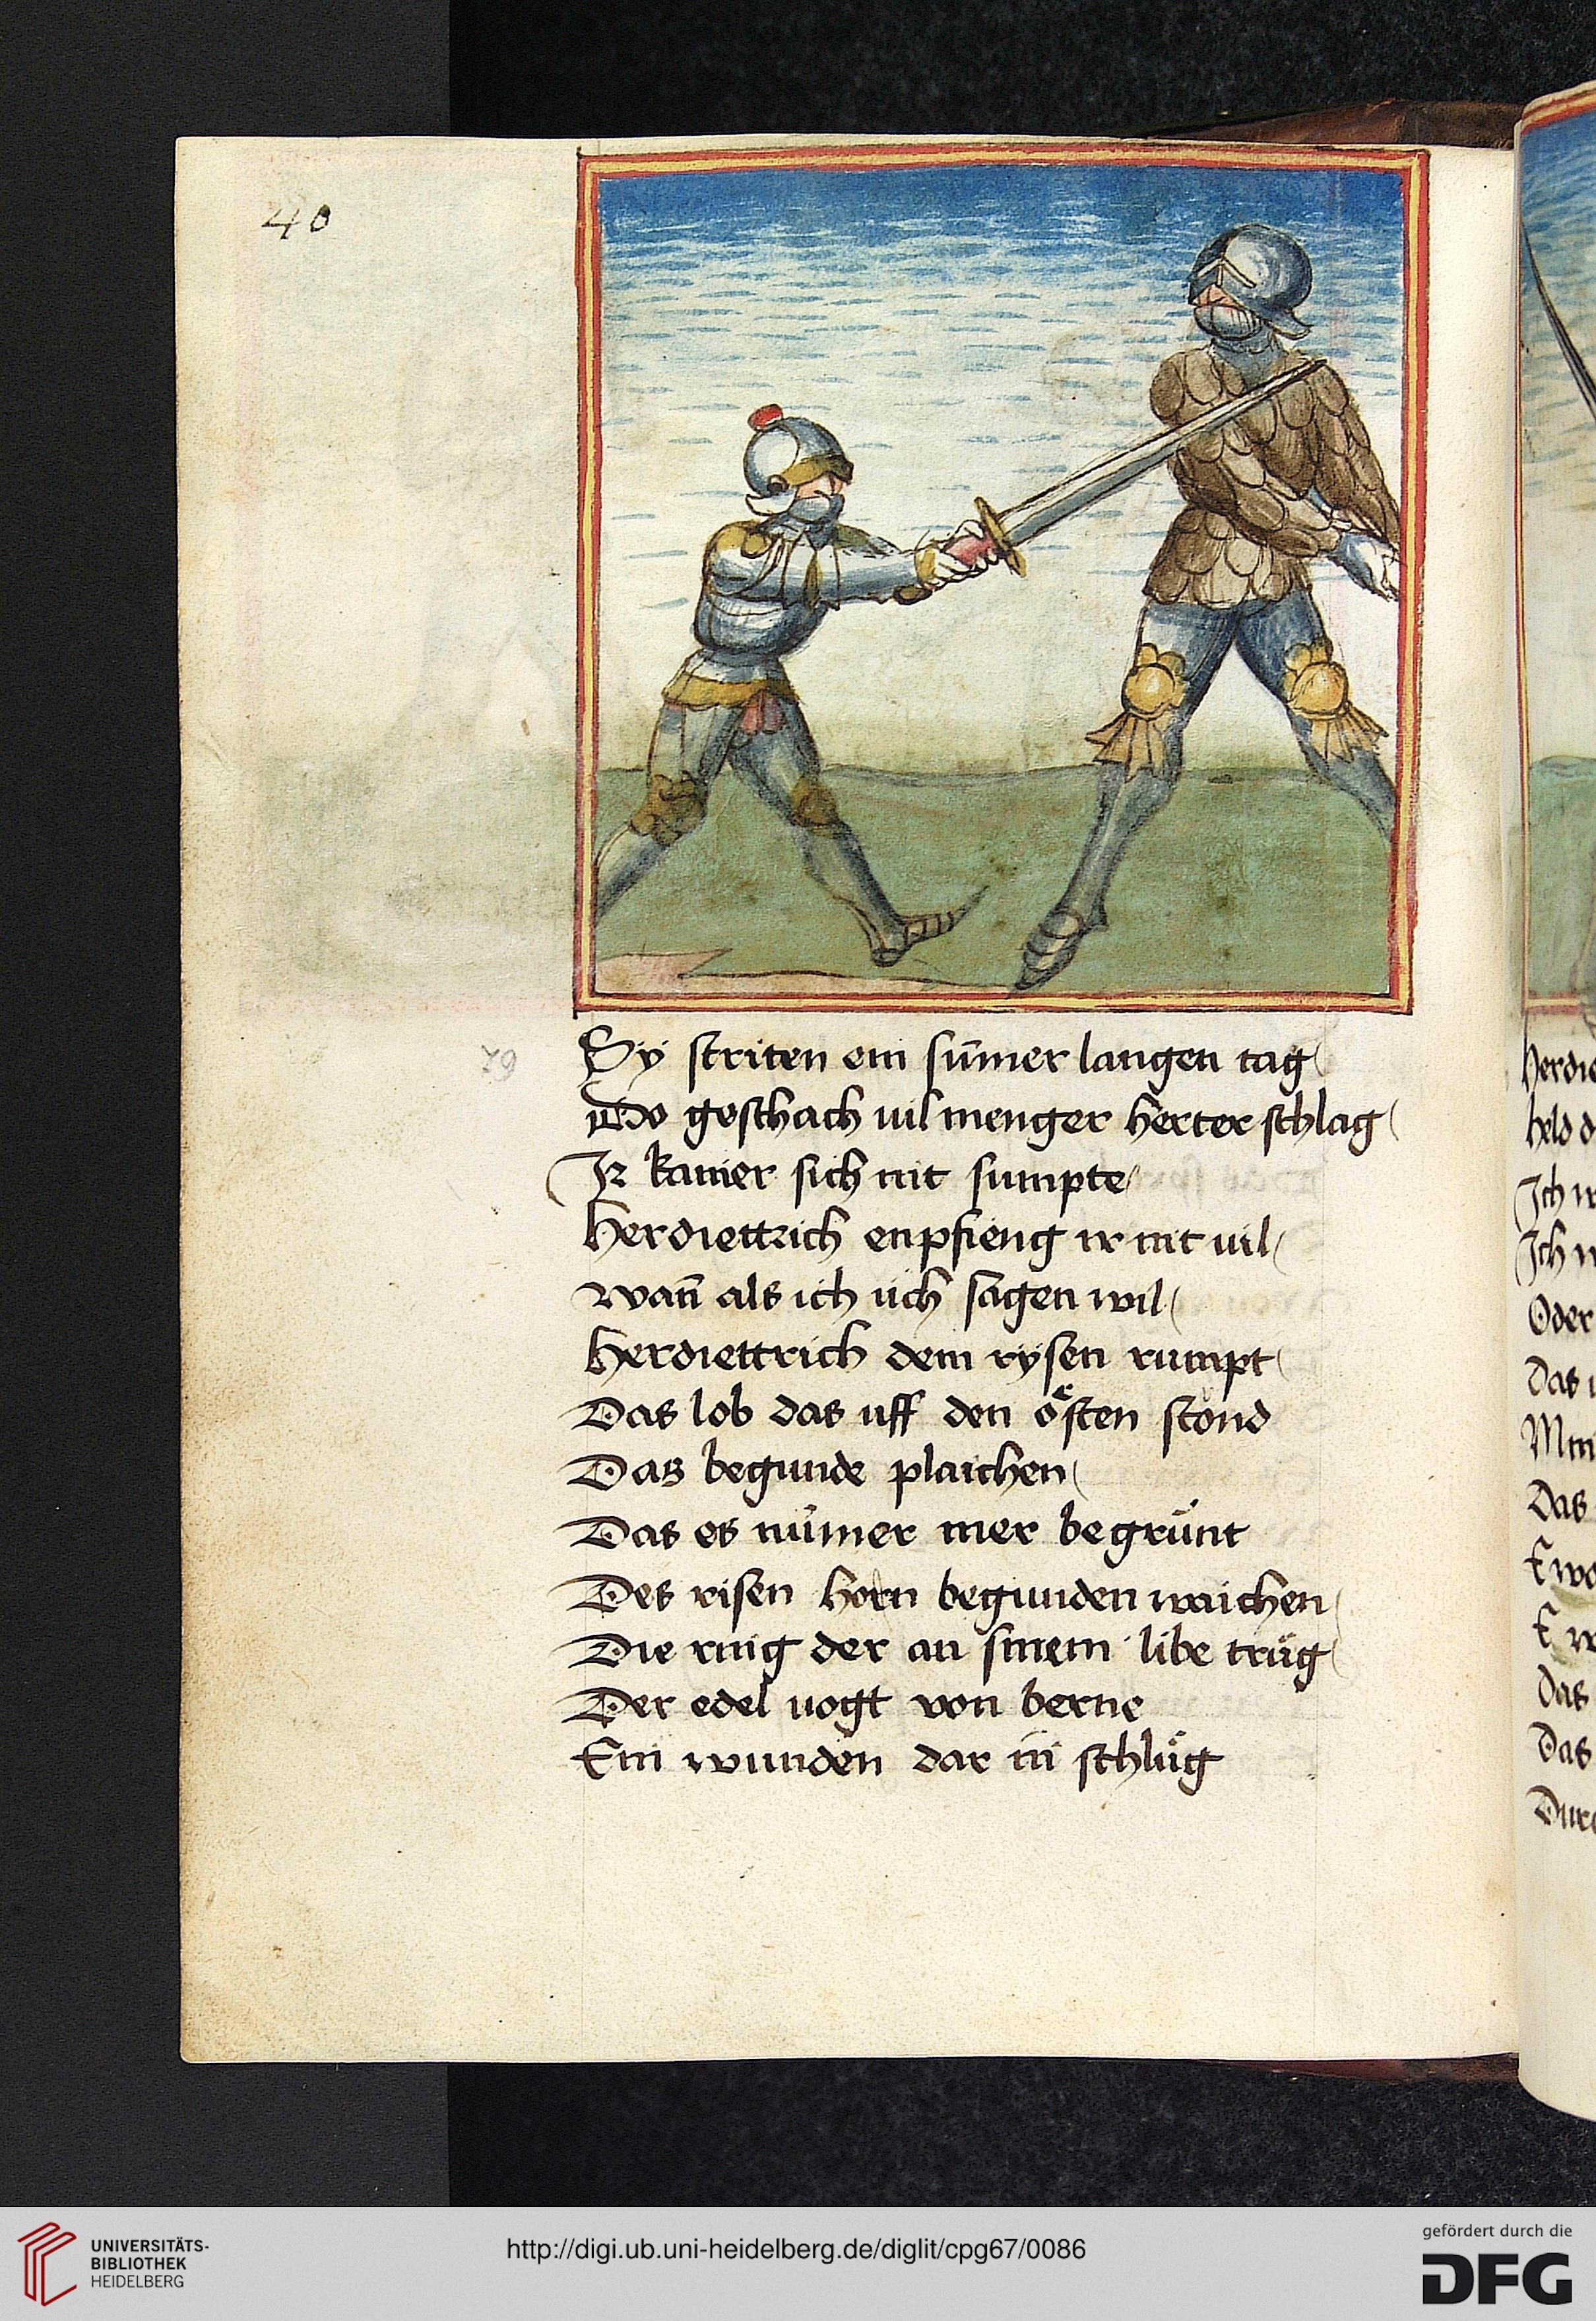 40
79
Sy striten ein sum̄er langen tag
Do geschach uil menger herter schlag
Ir kainer sich nit sumpte
Herdiettrich enpfieng ir nit uil
wan̄ als ich üch sagen wil
Herdiettrich dem rysen rumpt
Das lob das uff den oͤsten stond
Das begunde plaichen
Das es nu̍mer mer begrünt
Des risen horn begunden waichen
Die ring der an sinem libe truͦg
Der edel uogt von berne
Ein wunden dar in schluͦg
Herdie
held d
Ich
Ich
Oder
Das
Min
Das
E
Das
Das
Dur
UNIVERSITÄTS-
BIBLIOTHEK
HEIDELBERG
http://digi.ub.uni-heidelberg.de/diglit/cpg67/0086
gefördert durch die
DFG